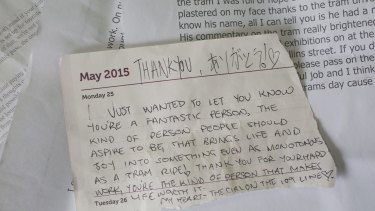 the tram I was full of
plastered on my face thanks to the tram
know his name, all I can tell you is he had a
His commentary on the tram really brightened
exhibitions on at the
Collins street. If you
please pass on the
job and I think
trams day cause
work. On my
May 2015 THANKYOU, ありがとう!♡
Monday 25
I JUST WANTED TO LET YOU KNOW
YOU'RE A FANTASTIC PERSON, THE
KIND OF PERSON PEOPLE SHOULD
ASPIRE TO BE, THAT BRINGS LIFE AND
JOY INTO SOMETHING EVEN AS MONOTONOUS
AS A TRAM RIDE! THANK YOU FOR YOUR HARD
WORK, YOU'RE THE KIND OF PERSON THAT MAKES
Tuesday 26 LIFE WORTH IT.
MY HEART - THE GIRL ON THE 109 LINE ♡